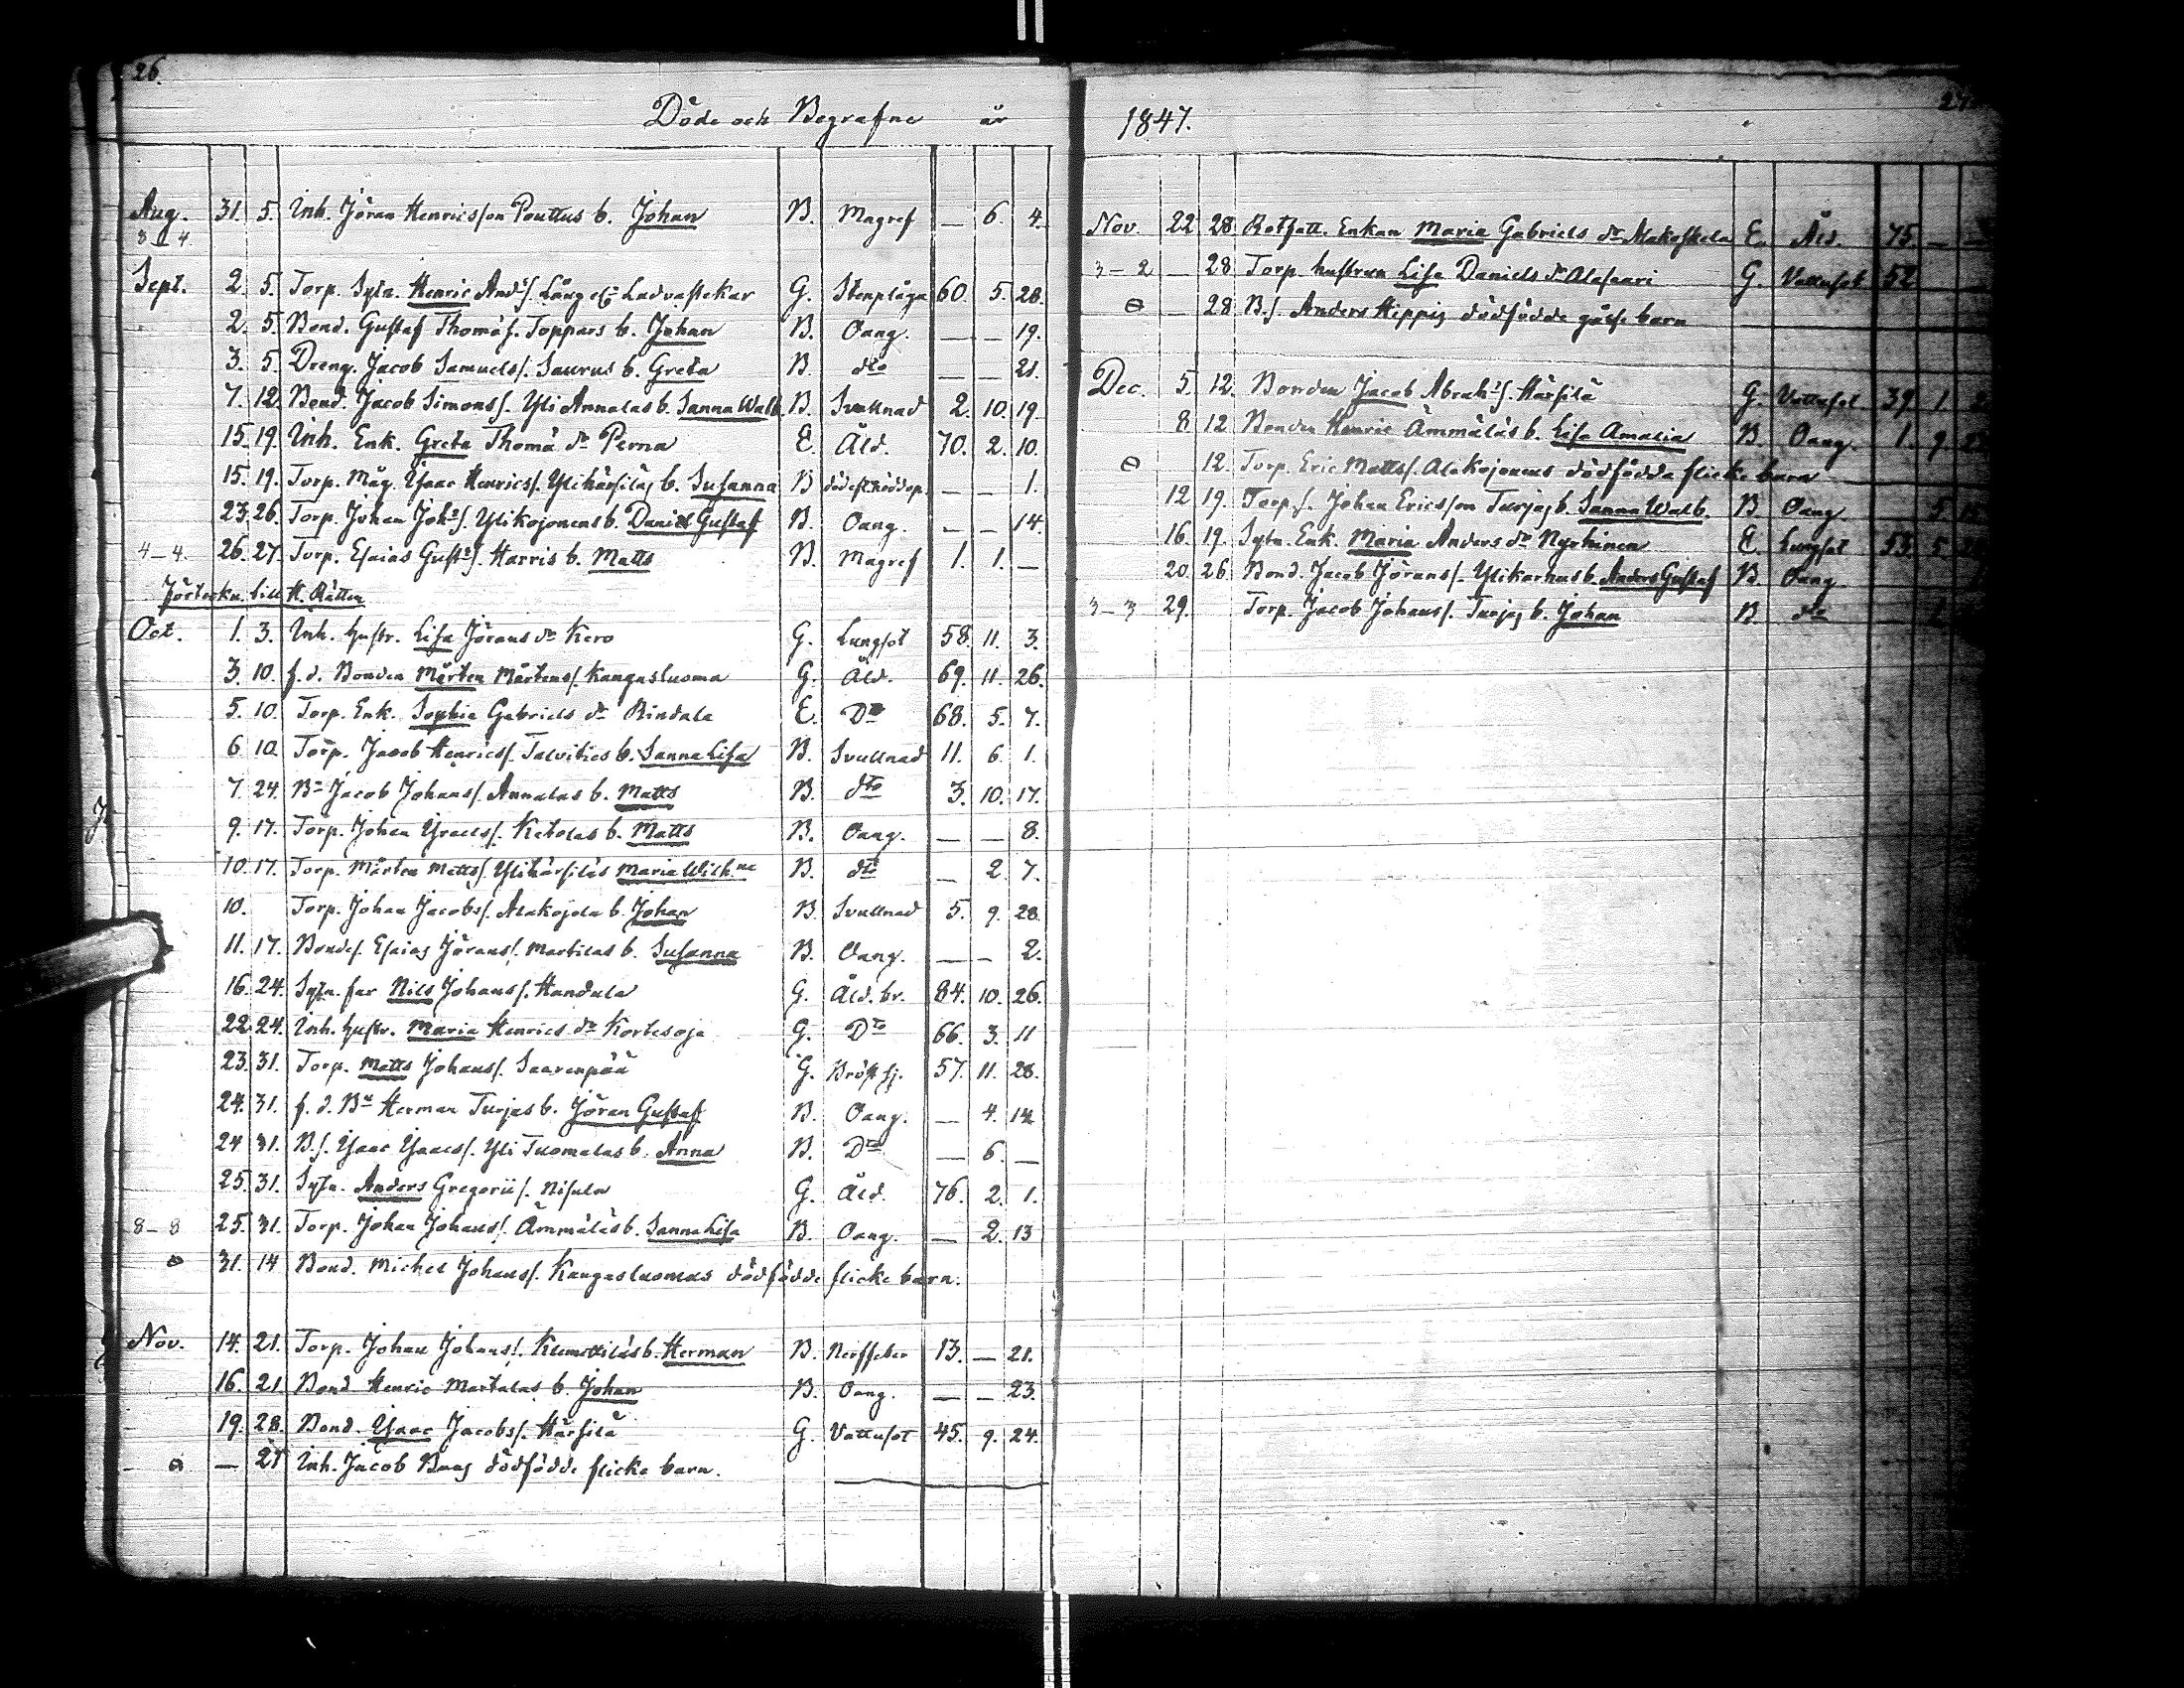 26.
Döde och Begrafne år
Aug. 31. 5. Inh. Jöran Henricsson Pouttus b. Johan B. Magref — 6. 4.
Sept. 2. 5. Torp. Sytn. Henric And:s. Lång Ladvastekar G. Stenplåga 60. 5. 28.
2. 5. Bond. Gustaf Thomæs. Toppars b. Johan B. Oang. — — 19.
3. 5. Dreng. Jacob Samuelss. Saurus b. Greta B. dto — — 21.
7. 12. Bond. Jacob Simonss. Yli Annalas b. Sanna Walb. B. Svullnad 2. 10. 19.
15. 19. Inh. Enk. Greta Thomæ dr Perna E. Åld. 70. 2. 10.
15. 19. Torp. Måg. Isaac Henricss. Ylihärsiläs b. Susanna B — — 1.
23. 26. Torp. Johan Joh:s. Ylikojonens b. Daniel Gustaf B. Oang. — — 14.
4–4. 26. 27. Torp. Esaias Gust:s. Harris b. Matts B. Magref 1. 1. —
till H. Rätten
Oct. 1. 3. Inh. hustr. Lisa Jörans dr Kero G. Lungsot 58. 11. 3.
3. 10. f. d. Bonden Mårten Mårtenss. Kangasluoma G. Åld. 69. 11. 26.
5. 10. Torp. Enk. Sophia Gabriels dr Rindala E. Do 68. 5. 7.
6. 10. Torp. Jacob Henricss. Talvities b. Sanna Lisa B. Svullnad 11. 6. 1.
7. 24. Bn Jacob Johanss. Annalas b. Matts B. dto 3. 10. 17.
9. 17. Torp. Johan Israelss. Ketolas b. Matts B. Oang. — — 8.
10. 17. Torp. Mårten Mattss. Ylihärsiläs Maria Wilh:na B. dto — 2. 7.
10. Torp. Johan Jacobss. Alakojola b. Johan B. Svullnad 5. 9. 28.
11. 17. Bondes. Esaias Jöranss. Martilas b. Susanna B. Oang. — — 2.
16. 24. Sytn. far Nils Johanss. Handula G. Åld. br. 84. 10. 26.
22. 24. Inh. hustr. Maria Henrics dr Kortesoja G. Do 66. 3. 11
23. 31. Torp. Matts Johanss. Saarenpää G. Bröstsj. 57. 11. 28.
24. 31. f. d. Bn Herman Turjas b. Jöran Gustaf B. Oang. — 4. 14
24 31. B.s. Isaac Isaacs. Yli Tuomalas b. Anna B. Do — 6. —
25. 31. Sytn. Anders Gregorii s. Nisula G. Åld. 76. 2. 1.
8–8 25. 31. Torp. Johan Johanss. Ämmäläs b. Sanna Lisa B. Oang. — 2. 13
31. 14 Bond. Michel Johanss. Kangasluomas dödfödde flicke barn.
Nov. 14. 21. Torp. Johan Johanss. Klemettiläs b. Herman B. Nerffeber 13. — 21.
16. 21 Bond. Henric Martalas b. Johan B. Oang. — — 23.
19. 28. Bond. Isaac Jacobss. Härsilä G. Vattusot 45. 9. 24.
— 21 Inh. Jacob dödfödde flicke barn.
1847.
Nov. 22 28 Enkan Maria Gabriels dr E. Åld. 75. —
3–2 — 28 Torp. hustrun Lisa Daniels dr Alasaari G. Vattusot 52
— 28 B.s. Anders Hippis dödfödde gåsse barn
Dec. 5. 12. Bonden Jacob Abrah:s. Härsilä G. Vattusot 39 1.
8 12 Bonden Henric Ämmäläs b. Lisa Amalia B. Oang. 1. 9.
12. Torp. Eric Mattss. Alakojonens dödfödde flicke barn
12 19. Torp.s. Johan Ericsson Turjas b. Sanna Walb. B. Oang. 5
16. 19. Sytn. Enk. Maria Anders dr Nyrhinen E. Lungsot 53. 5
20. 26 Bond. Jacob Jöranss. Ylikarhus b. Anders Gustaf B. Oang
3–3 29. Torp. Jacob Johanss. Turjas b. Johan B. dto